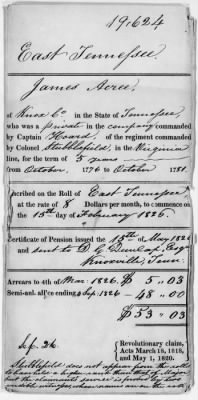 19.624
East Tennessee.
James Acree.
of Knox Co. in the State of Tennessee,
who was a private in the company commanded
by Captain Hoard, of the regiment commanded
by Colonel Stubblefield, in the Virginia
line, for the term of 5 years
from October, 1776 to October 1781.
scribed on the Roll of East Tennessee
at the rate of 8 Dollars per month, to commence on
the 15th day of February 1826.
Certificate of Pension issued the 15th of May 1826
and sent to D. C. Esqr
Knoxville, Tenn.
Arrears to 4th Mar. 1826. $ 5 .. 03
Semi-anl. all'ce ending 4 Sep. 1826 - 48 .. 00
$ 53 .. 03
Revolutionary claim,
Acts March 18, 1818,
and May 1, 1820.
Stubblefield does not appear from the rolls
to have had a higher rank than that of Major
but the claimant's service is proved by two